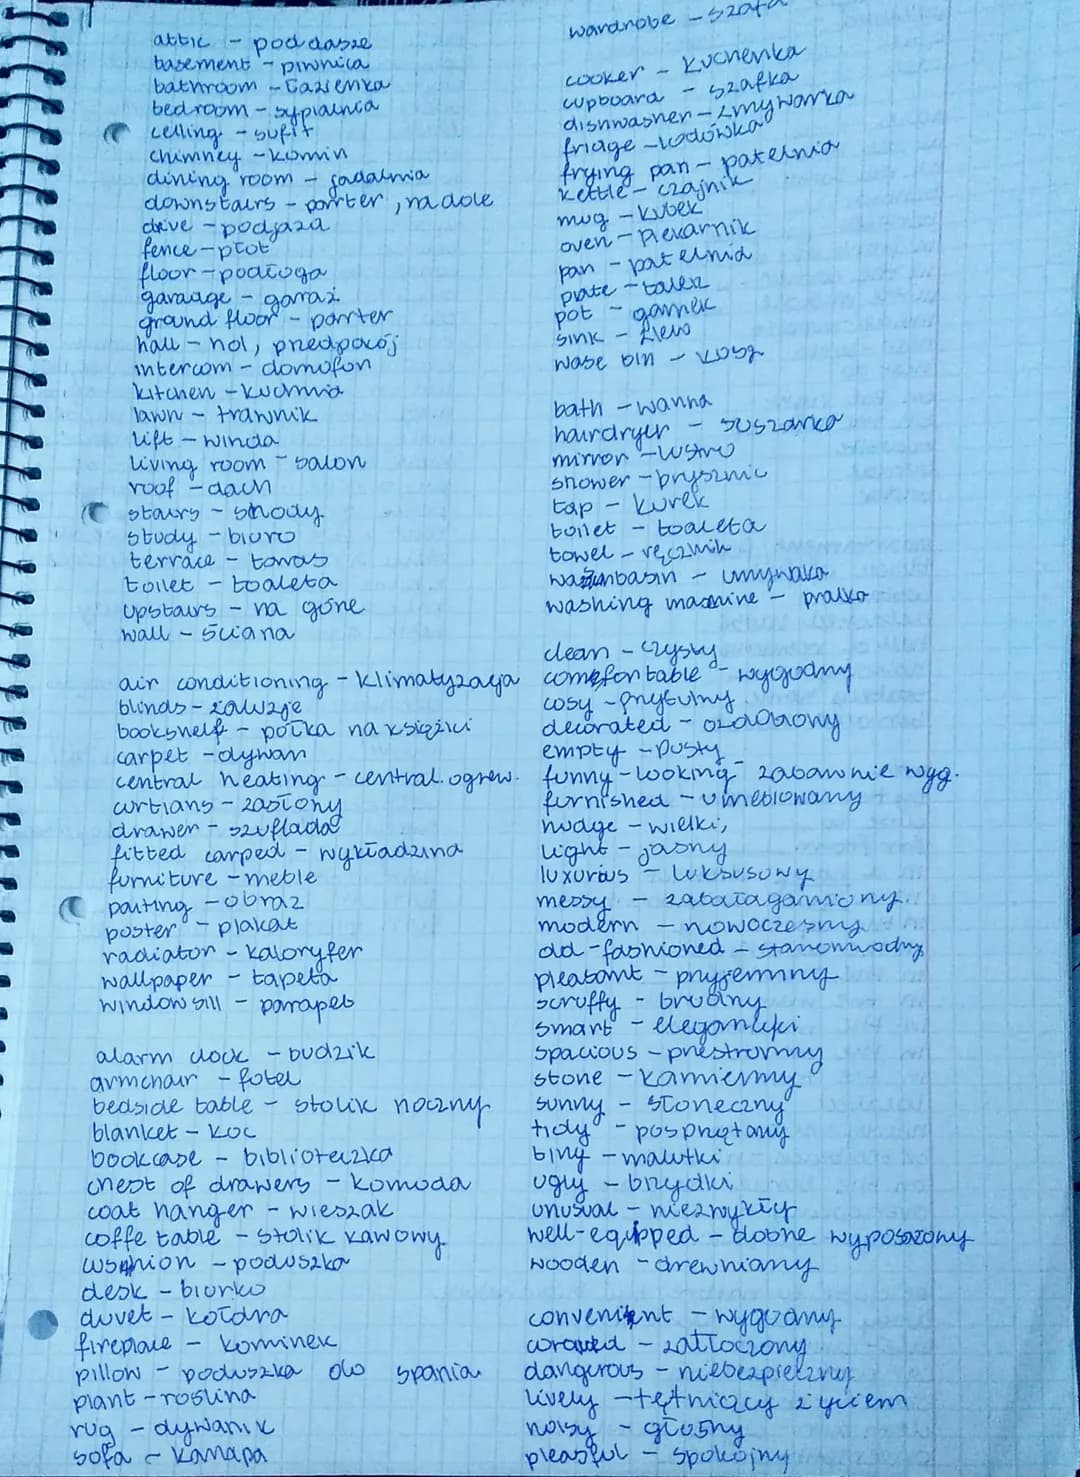 attic - poddasze
basement - piwnica
bathroom - łazienka
bedroom - sypialnia
celling - sufit
chimney - komin
dining room - jadalnia
downstairs - parter, na dole
drive - podjazd
fence - płot
floor - podłoga
garadge - garaż
ground floor - parter
hall - hol, przedpokój
intercom - domofon
kitchen - kuchnia
lawn - trawnik
lift - winda
living room - salon
roof - dach
stairs - schody
study - biuro
terrace - taras
toilet - toaleta
upstairs - na górze
wall - ściana
air conditioning - klimatyzacja
blinds - żaluzje
bookshelf - półka na książki
carpet - dywan
central heating - central. ogrew.
curtians - zasłony
drawer - szuflada
fitted carped - wykładzina
furniture - meble
paiting - obraz
poster - plakat
radiator - kaloryfer
wallpaper - tapeta
window sill - parapet
alarm clock - budzik
armchair - fotel
bedside table - stolik nocny
blanket - koc
bookcase - biblioteczka
chest of drawers - komoda
coat hanger - wieszak
coffe table - stolik kawowy
cushion - poduszka
desk - biurko
duvet - kołdra
fireplace - kominek
pillow - poduszka do spania
plant - roślina
rug - dywanik
sofa - kanapa
wardrobe - szafa
cooker - kuchenka
cupboard - szafka
dishwasher - zmywarka
friage - lodówka
frying pan - patelnia
kettle - czajnik
mug - kubek
oven - piekarnik
pan - patelnia
plate - talerz
pot - garnek
sink - zlew
wase bin - kosz
bath - wanna
hairdryer - suszarka
mirror - lustro
shower - prysznic
tap - kurek
toilet - toaleta
towel - ręcznik
washbasin - umywalka
washing machine - pralka
clean - czysty
comfortable - wygodny
cosy - przytulny
decorated - ozdobiony
empty - pusty
funny-looking - zabawnie wyg.
furnished - umeblowany
hudge - wielki,
light - jasny
luxurius - luksusowy
messy - zabałaganiony
modern - nowoczesny
old-fashioned - staromodny
pleasant - przyjemny
scruffy - brudny
smart - elegancki
spacious - przestronny
stone - kamienny
sunny - słoneczny
tidy - posprzątany
tiny - malutki
ugly - brzydki
unusual - niezwykły
well-equipped - dobrze wyposażony
wooden - drewniany
convenient - wygodny
corwded - zatłoczony
dangerous - niebezpieczny
lively - tętniący życiem
noisy - głośny
pleasful - spokojny